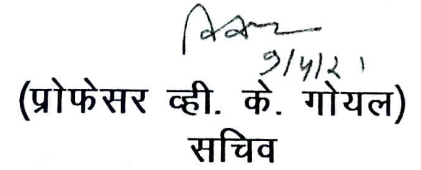 9/4/21
(प्रोफेसर व्ही. के. गोयल)
सचिव